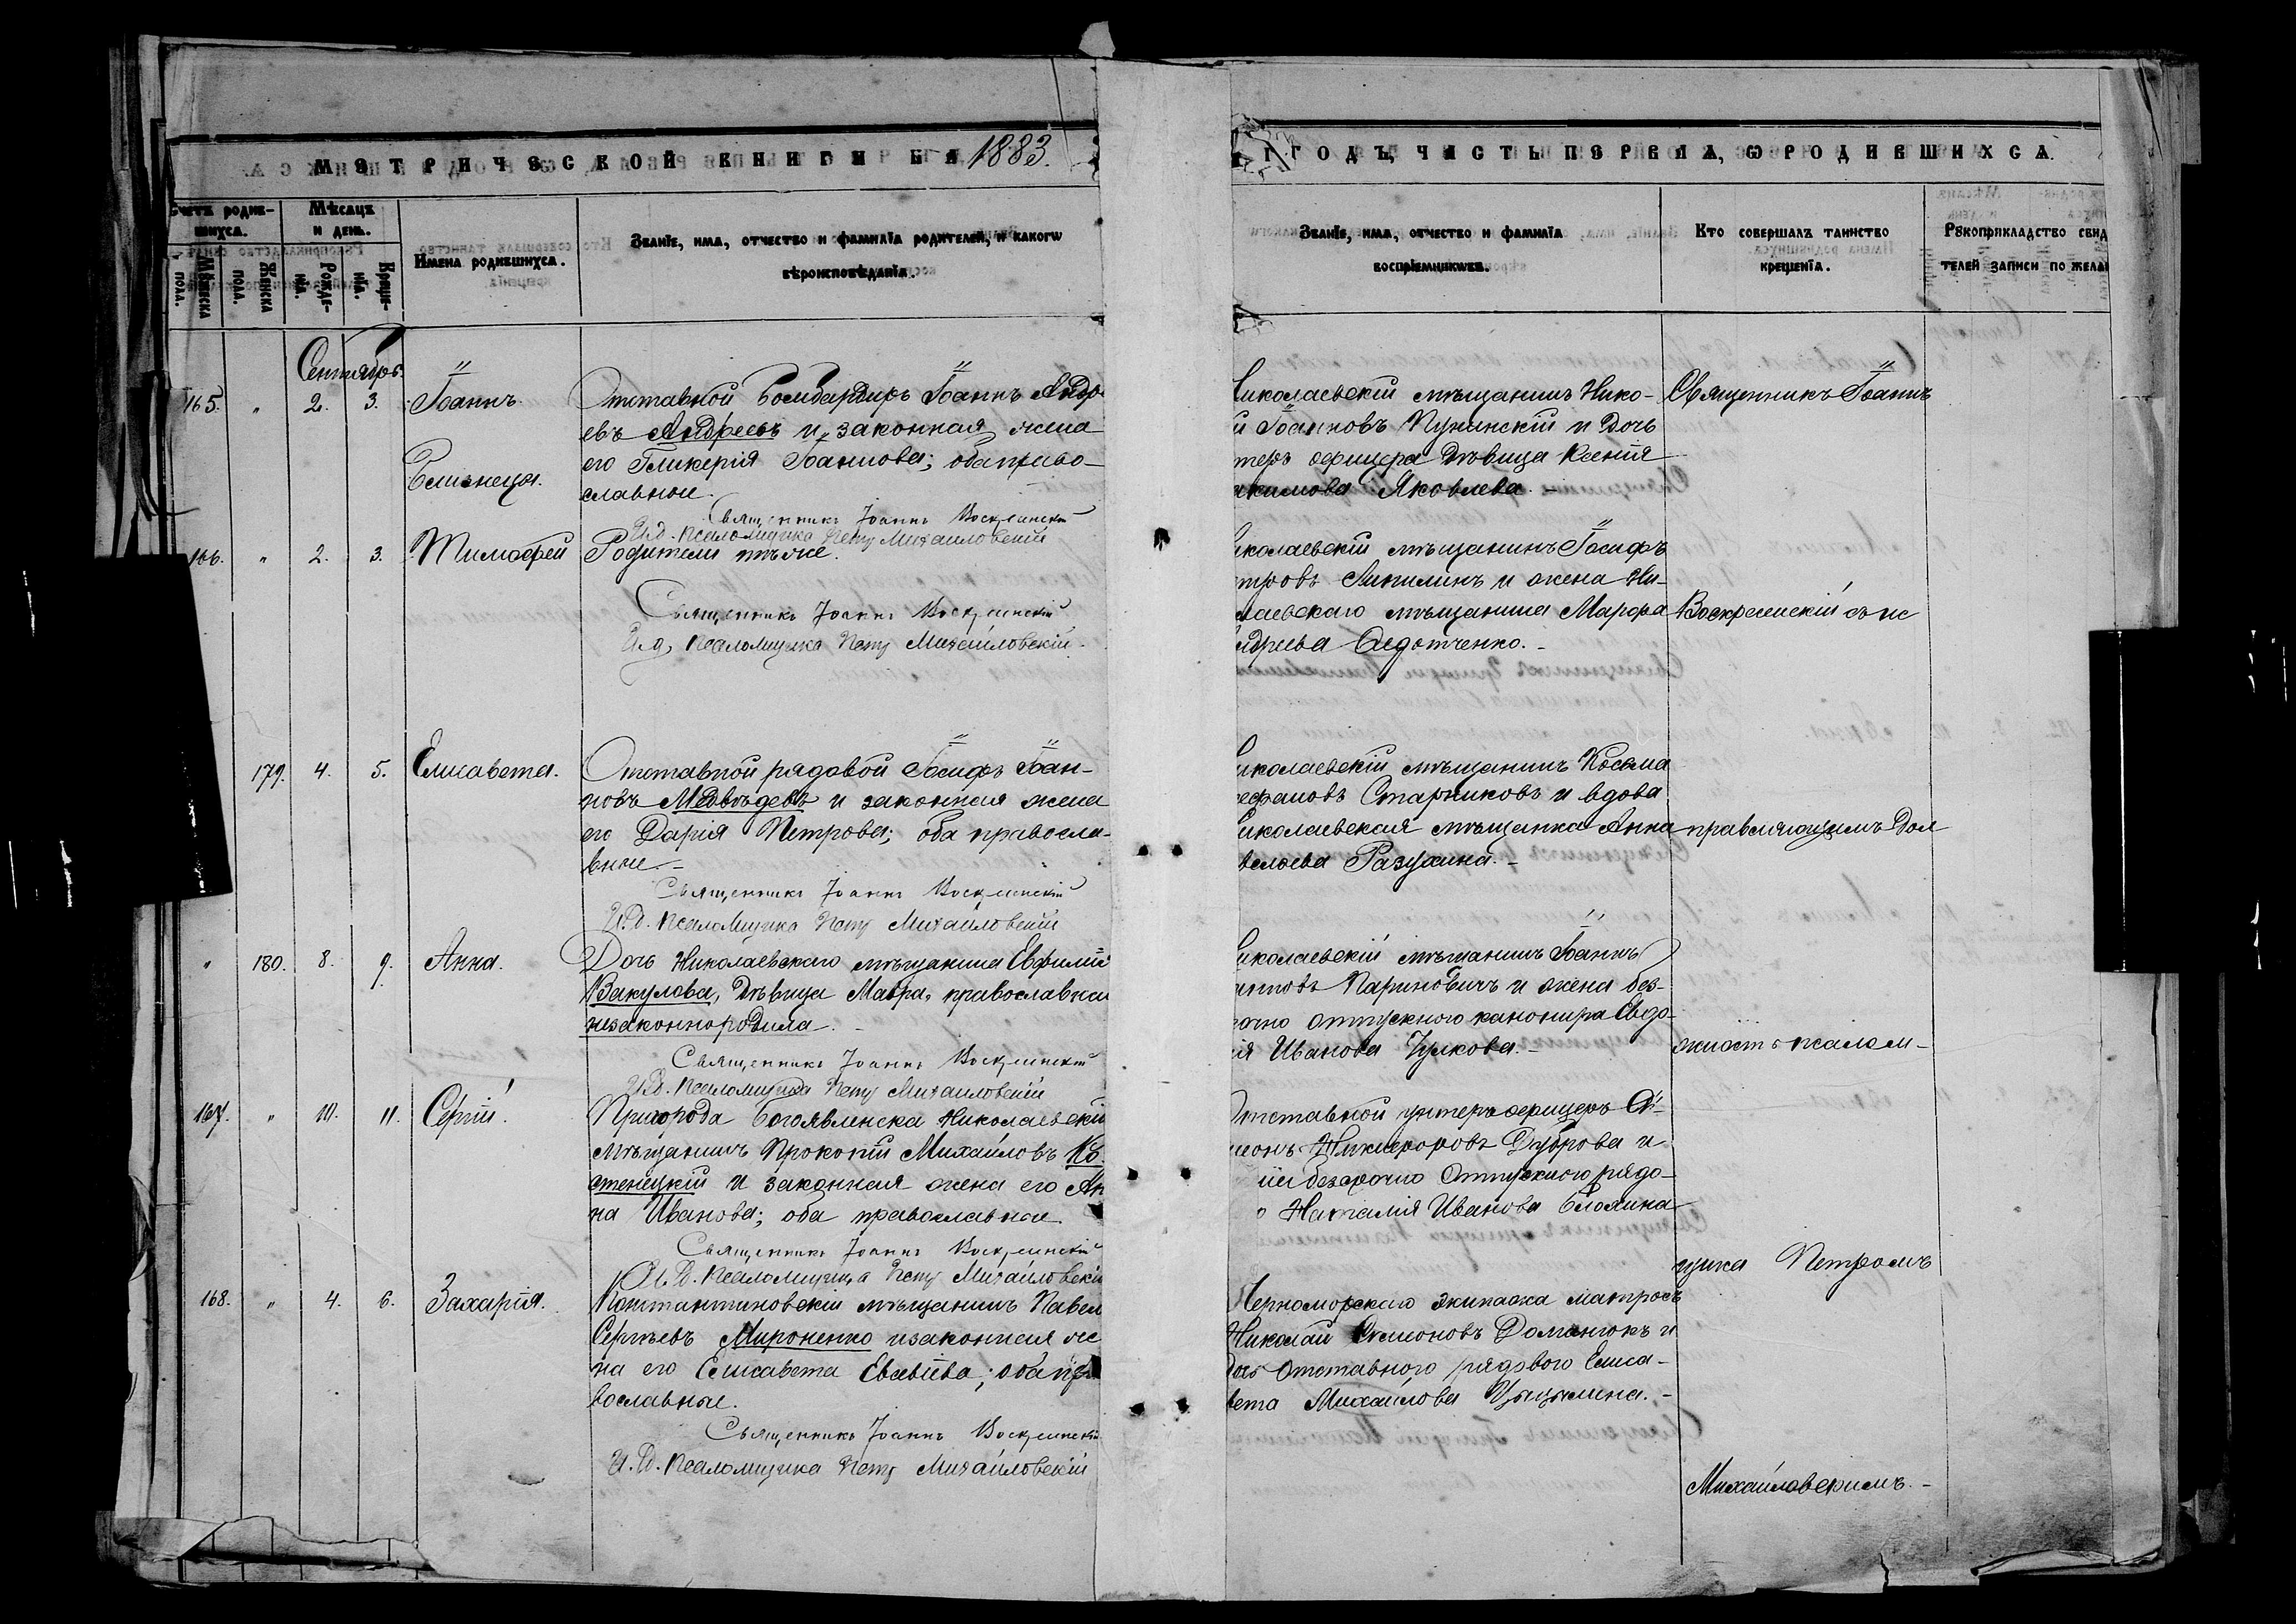 МЕТРИЧЕСКОЙ КНИГИ НА 1883.
ГОДЪ, ЧАСТЬ ПЕРВАЯ, Ѡ РОДИВШИХСѦ.
Счетъ родив-
шихсѧ.
Мѣсяцъ
и день.
Мужеска
пола.
Женска
пола.
Рожде-
нїѧ.
Креще-
нїѧ.
Имена родившихсѧ.
Званїе, имѧ, отчество и фамилїѧ родителей, и какогѡ
вѣроисповѣданїѧ.
Званїе, имѧ, отчество и фамилїѧ
воспрїемниковъ.
Кто совершалъ таинство
крещенїѧ.
Рѹкоприкладство свид
телей записи по жела
Сентябрь.
165. " 2. 3. Іоаннъ.
Близнецы.
Отставной бомбардиръ Іоаннъ Андре
евъ Андреевъ и законная жена
его Гликерія Іоаннова; оба право-
славные.
Священникъ Іоаннъ Воскресенскій
И.д. псаломщика Петръ Михайловскій
иколаевскій мѣщанинъ Нико-
й Іоанновъ Пунинскій и дочь
теръ офицера дѣвица Ксенія
акимова Яковлева. -
166. " 2. 3. Тимофей
Родители тѣ же.
Священникъ Іоаннъ Воскресенскій
И.д. псаломщика Петръ Михайловскій
иколаевскій мѣщанинъ Іосифъ
тровъ Липилинъ и жена Ни-
лаевскаго мѣщанина Марфа
ндреева Федотченко. -
179. 4. 5. Елисавета.
Отставной рядовой Іосифъ Іоан-
новъ Медвѣдевъ и законная жена
его Дарія Петрова; оба правосла-
вные. -
Священникъ Іоаннъ Воскресенскій
И.д. псаломщика Петръ Михайловскій
иколаевскій мѣщанинъ Косьма
ефановъ Старчиковъ и вдова
иколаевская мѣщанка Анна
велоева Разухина. -
" 180. 8. 9. Анна.
Дочь Николаевскаго мѣщанина Евфимія
Вакулова, дѣвица Мавра, православная
незаконнородила. -
Священникъ Іоаннъ Воскресенскій
И.д. псаломщика Петръ Михайловскій
иколаевскій мѣщанинъ Іоаннъ
антовъ Париновичъ и жена без-
рочно отпускного канонира Евдо-
ія Иванова Чулкова. -
167. " 10. 11. Сергій.
Пригорода Богоявленска Николаевскій
мѣщанинъ Прокопій Михайловъ Ко
стенецкій и законная жена его Ан
на Иванова; оба православные
Священникъ Іоаннъ Воскресенскій
И.д. псаломщика Петръ Михайловскій
Отставной унтеръ офицеръ Си-
меонъ Никифоровъ Дуброва и
безсрочно отпускного рядо-
о Наталія Иванова Блохина
168. " 4. 6. Захарія.
Константиновскій мѣщанинъ Павелъ
Сергѣевъ Мироненко и законная же
на его Елисавета Евсевіева; оба пра
вославные.
Священникъ Іоаннъ Воскресенскій
И.д. псаломщика Петръ Михайловскій
Черноморскаго экипажа матросъ
Николай Симоновъ Доманюкъ и
дочь отставного рядового Елиса-
вета Михайлова Цыцылина. -
Священникъ Іоаннъ
Воскресенскій съ ис
правляющимъ дол
жность псалом-
щика Петромъ
Михайловскимъ. -